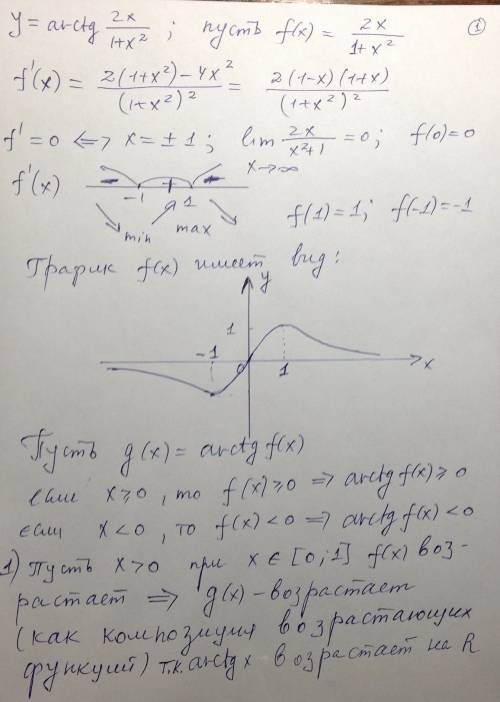 y = arctg 2x/(1+x²) ; пусть f(x) = 2x/(1+x²) ①
f'(x) = (2(1+x²)-4x²)/(1+x²)² = 2(1-x)(1+x)/(1+x²)²
f' = 0 <=> x = ± 1 ; lim x→∞ 2x/(x²+1) = 0 ; f(0) = 0
f'(x) - -1 + 1 -
min max f(1) = 1 ; f(-1) = -1
График f(x) имеет вид:
y
1
-1 0 1 x
Пусть g(x) = arctg f(x)
если x ≥ 0, то f(x) ≥ 0 => arctg f(x) ≥ 0
если x < 0, то f(x) < 0 => arctg f(x) < 0
1) Пусть x > 0 при x ∈ [0;1] f(x) воз-
растает => g(x) - возрастает
(как композиция возрастающих
функций) т.к. arctg x возрастает на R